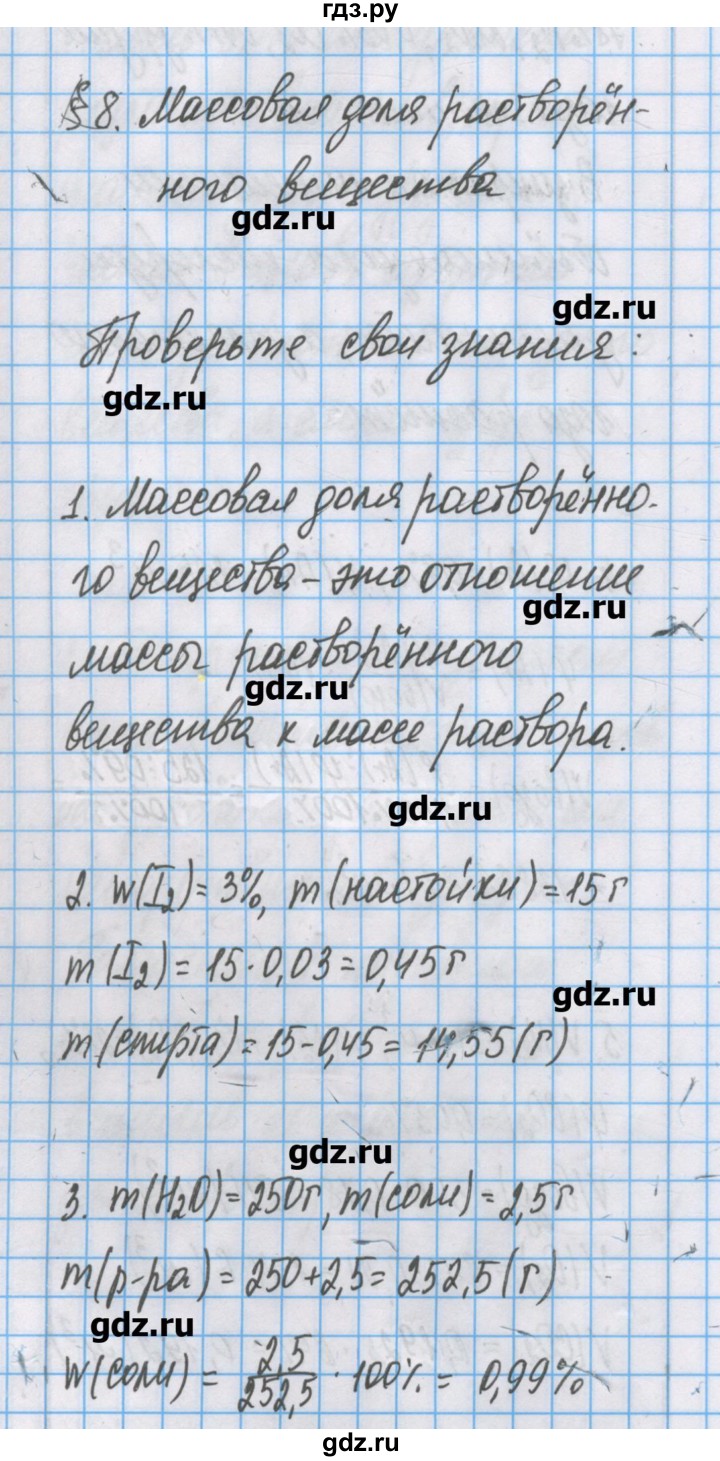 гдз.ру
§8. Массовая доля растворён-
ного вещества
gdz.ru
gdz.ru
Проверьте свои знания:
gdz.ru
1. Массовая доля растворённо-
го вещества – это отношение
gdz.ru
массы растворённого
gdz.ru
вещества к массе раствора.
gdz.ru
2. w(I₂) = 3%, m(настойки) = 15 г
m(I₂) = 15 · 0,03 = 0,45 г
gdz.ru
m(спирта) = 15 - 0,45 = 14,55 (г)
gdz.ru
3. m(H₂O) = 250 г, m(соли) = 2,5 г
m(р-ра) = 250 + 2,5 = 252,5 (г)
gdz.ru
w(соли) = 2,5/252,5 · 100% = 0,99%
gdz.ru